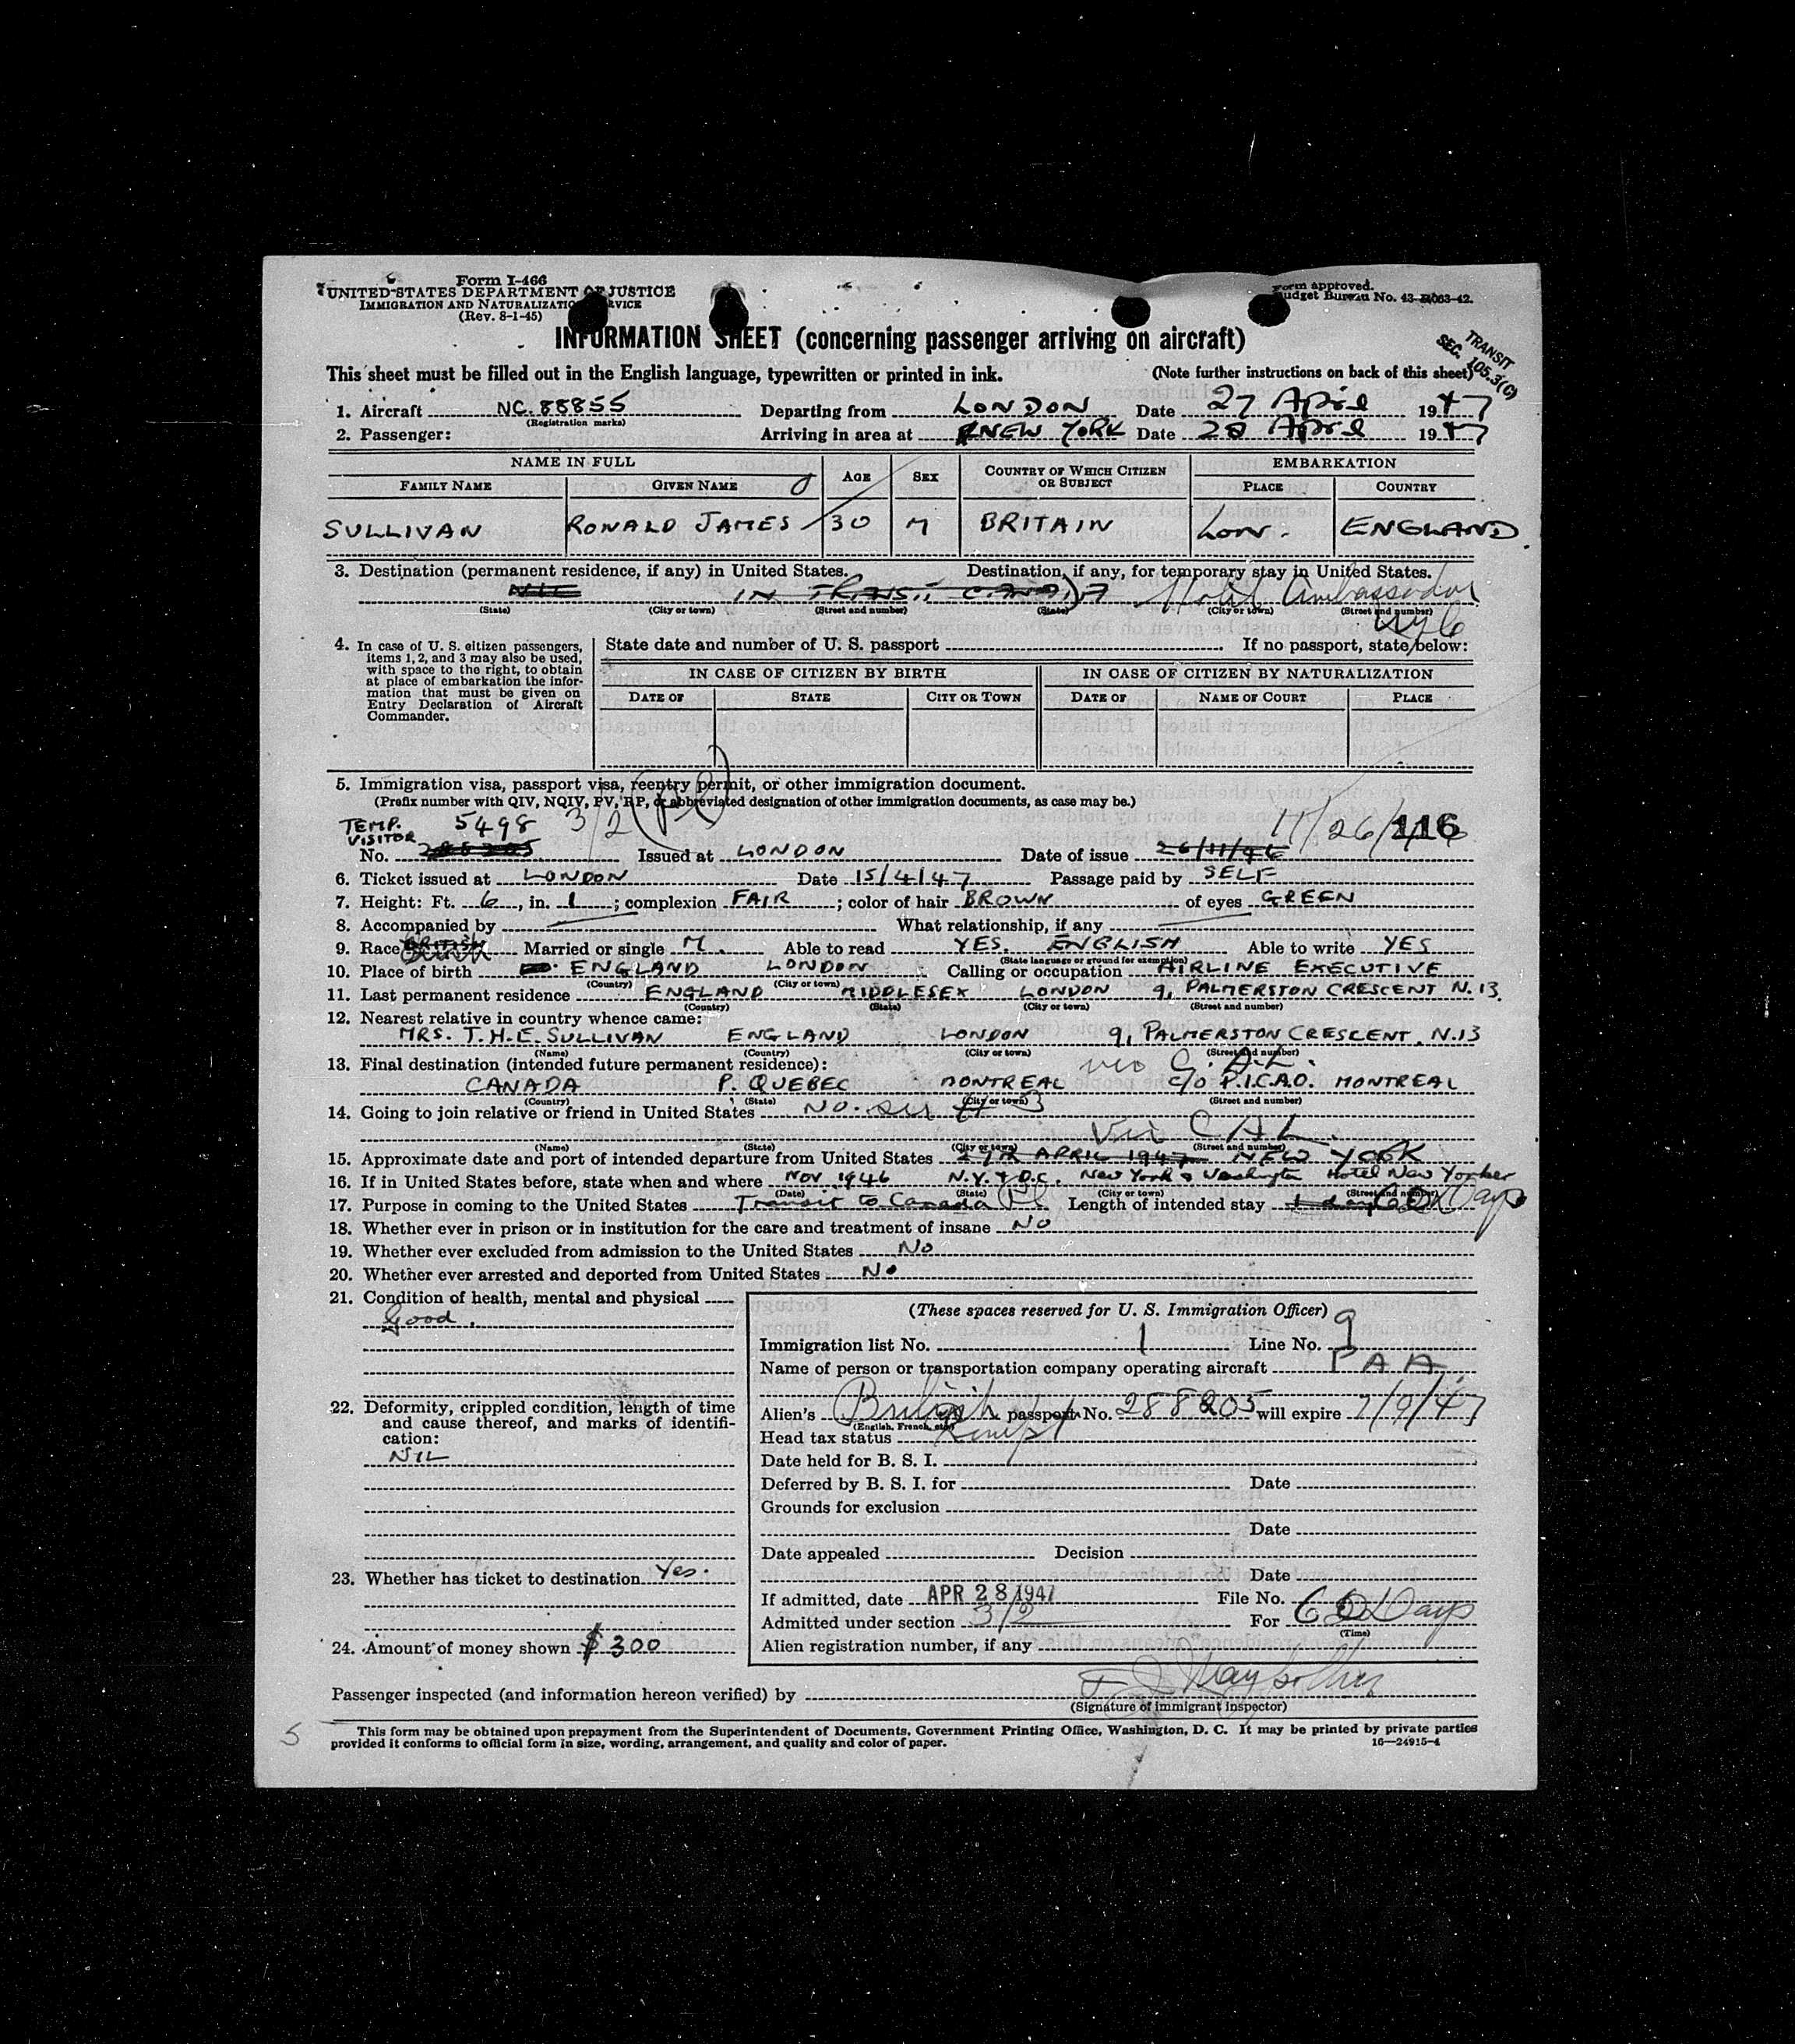 Form I-466
UNITED STATES DEPARTMENT OF JUSTICE
IMMIGRATION AND NATURALIZATION SERVICE
(Rev. 8-1-45)
Form approved.
Budget Bureau No. 43-R063-42.
INFORMATION SHEET (concerning passenger arriving on aircraft)
TRANSIT
SEC. 105.3(C)
This sheet must be filled out in the English language, typewritten or printed in ink. (Note further instructions on back of this sheet)
1. Aircraft NC.88855 Departing from LONDON Date 27 April 1947
(Registration marks)
2. Passenger: Arriving in area at NEW YORK Date 28 April 1947
NAME IN FULL AGE SEX COUNTRY OF WHICH CITIZEN OR SUBJECT EMBARKATION
FAMILY NAME GIVEN NAME PLACE COUNTRY
SULLIVAN RONALD JAMES 30 M BRITAIN LON. ENGLAND.
3. Destination (permanent residence, if any) in United States. Destination, if any, for temporary stay in United States.
NIL IN TRANSIT CANADA Hotel Ambassador
(State) (City or town) (Street and number) (State) (City or town) (Street and number)
NYC
4. In case of U. S. citizen passengers, items 1, 2, and 3 may also be used, with space to the right, to obtain at place of embarkation the information that must be given on Entry Declaration of Aircraft Commander.
State date and number of U. S. passport If no passport, state below:
IN CASE OF CITIZEN BY BIRTH IN CASE OF CITIZEN BY NATURALIZATION
DATE OF STATE CITY OR TOWN DATE OF NAME OF COURT PLACE
5. Immigration visa, passport visa, reentry permit, or other immigration document.
(Prefix number with QIV, NQIV, PV, RP, or abbreviated designation of other immigration documents, as case may be.)
TEMP. VISITOR 5498 3/2 11/26/46 116
No. Issued at LONDON Date of issue 26/11/46
6. Ticket issued at LONDON Date 15/4/47 Passage paid by SELF
7. Height: Ft. 6, in. 1; complexion FAIR; color of hair BROWN of eyes GREEN
8. Accompanied by What relationship, if any
9. Race BRITISH Married or single M. Able to read YES. ENGLISH Able to write YES
(State language or ground for exemption)
10. Place of birth ENGLAND LONDON Calling or occupation AIRLINE EXECUTIVE
(Country) (City or town)
11. Last permanent residence ENGLAND MIDDLESEX LONDON 9, PALMERSTON CRESCENT N.13.
(Country) (State) (City or town) (Street and number)
12. Nearest relative in country whence came:
MRS. T.H.E. SULLIVAN ENGLAND LONDON 9, PALMERSTON CRESCENT. N.13
(Name) (Country) (City or town) (Street and number)
13. Final destination (intended future permanent residence):
CANADA P. QUEBEC MONTREAL C/O P.I.C.A.O. MONTREAL
(Country) (State) (City or town) (Street and number)
14. Going to join relative or friend in United States NO.
Via C A L
(Name) (State) (City or town) (Street and number)
15. Approximate date and port of intended departure from United States APRIL 1947 NEW YORK
16. If in United States before, state when and where NOV 1946 N.Y. & D.C. New York & Washington Hotel New Yorker
(Date) (State) (City or town) (Street and number)
17. Purpose in coming to the United States Transit to Canada Length of intended stay 1 day 60 Days
18. Whether ever in prison or in institution for the care and treatment of insane NO
19. Whether ever excluded from admission to the United States NO
20. Whether ever arrested and deported from United States NO
21. Condition of health, mental and physical
Good.
22. Deformity, crippled condition, length of time and cause thereof, and marks of identification:
NIL
23. Whether has ticket to destination Yes.
24. Amount of money shown $300
(These spaces reserved for U. S. Immigration Officer)
Immigration list No. 1 Line No. 9
Name of person or transportation company operating aircraft P A A
Alien's British passport No. 288205 will expire 7/9/47
(English, French, etc.)
Head tax status
Date held for B. S. I.
Deferred by B. S. I. for Date
Grounds for exclusion
Date
Date appealed Decision
Date
If admitted, date APR 28 1947 File No.
Admitted under section 3/2 For 60 Days
(Time)
Alien registration number, if any
Passenger inspected (and information hereon verified) by
(Signature of immigrant inspector)
5
This form may be obtained upon prepayment from the Superintendent of Documents, Government Printing Office, Washington, D. C. It may be printed by private parties
provided it conforms to official form in size, wording, arrangement, and quality and color of paper. 16—24915-4